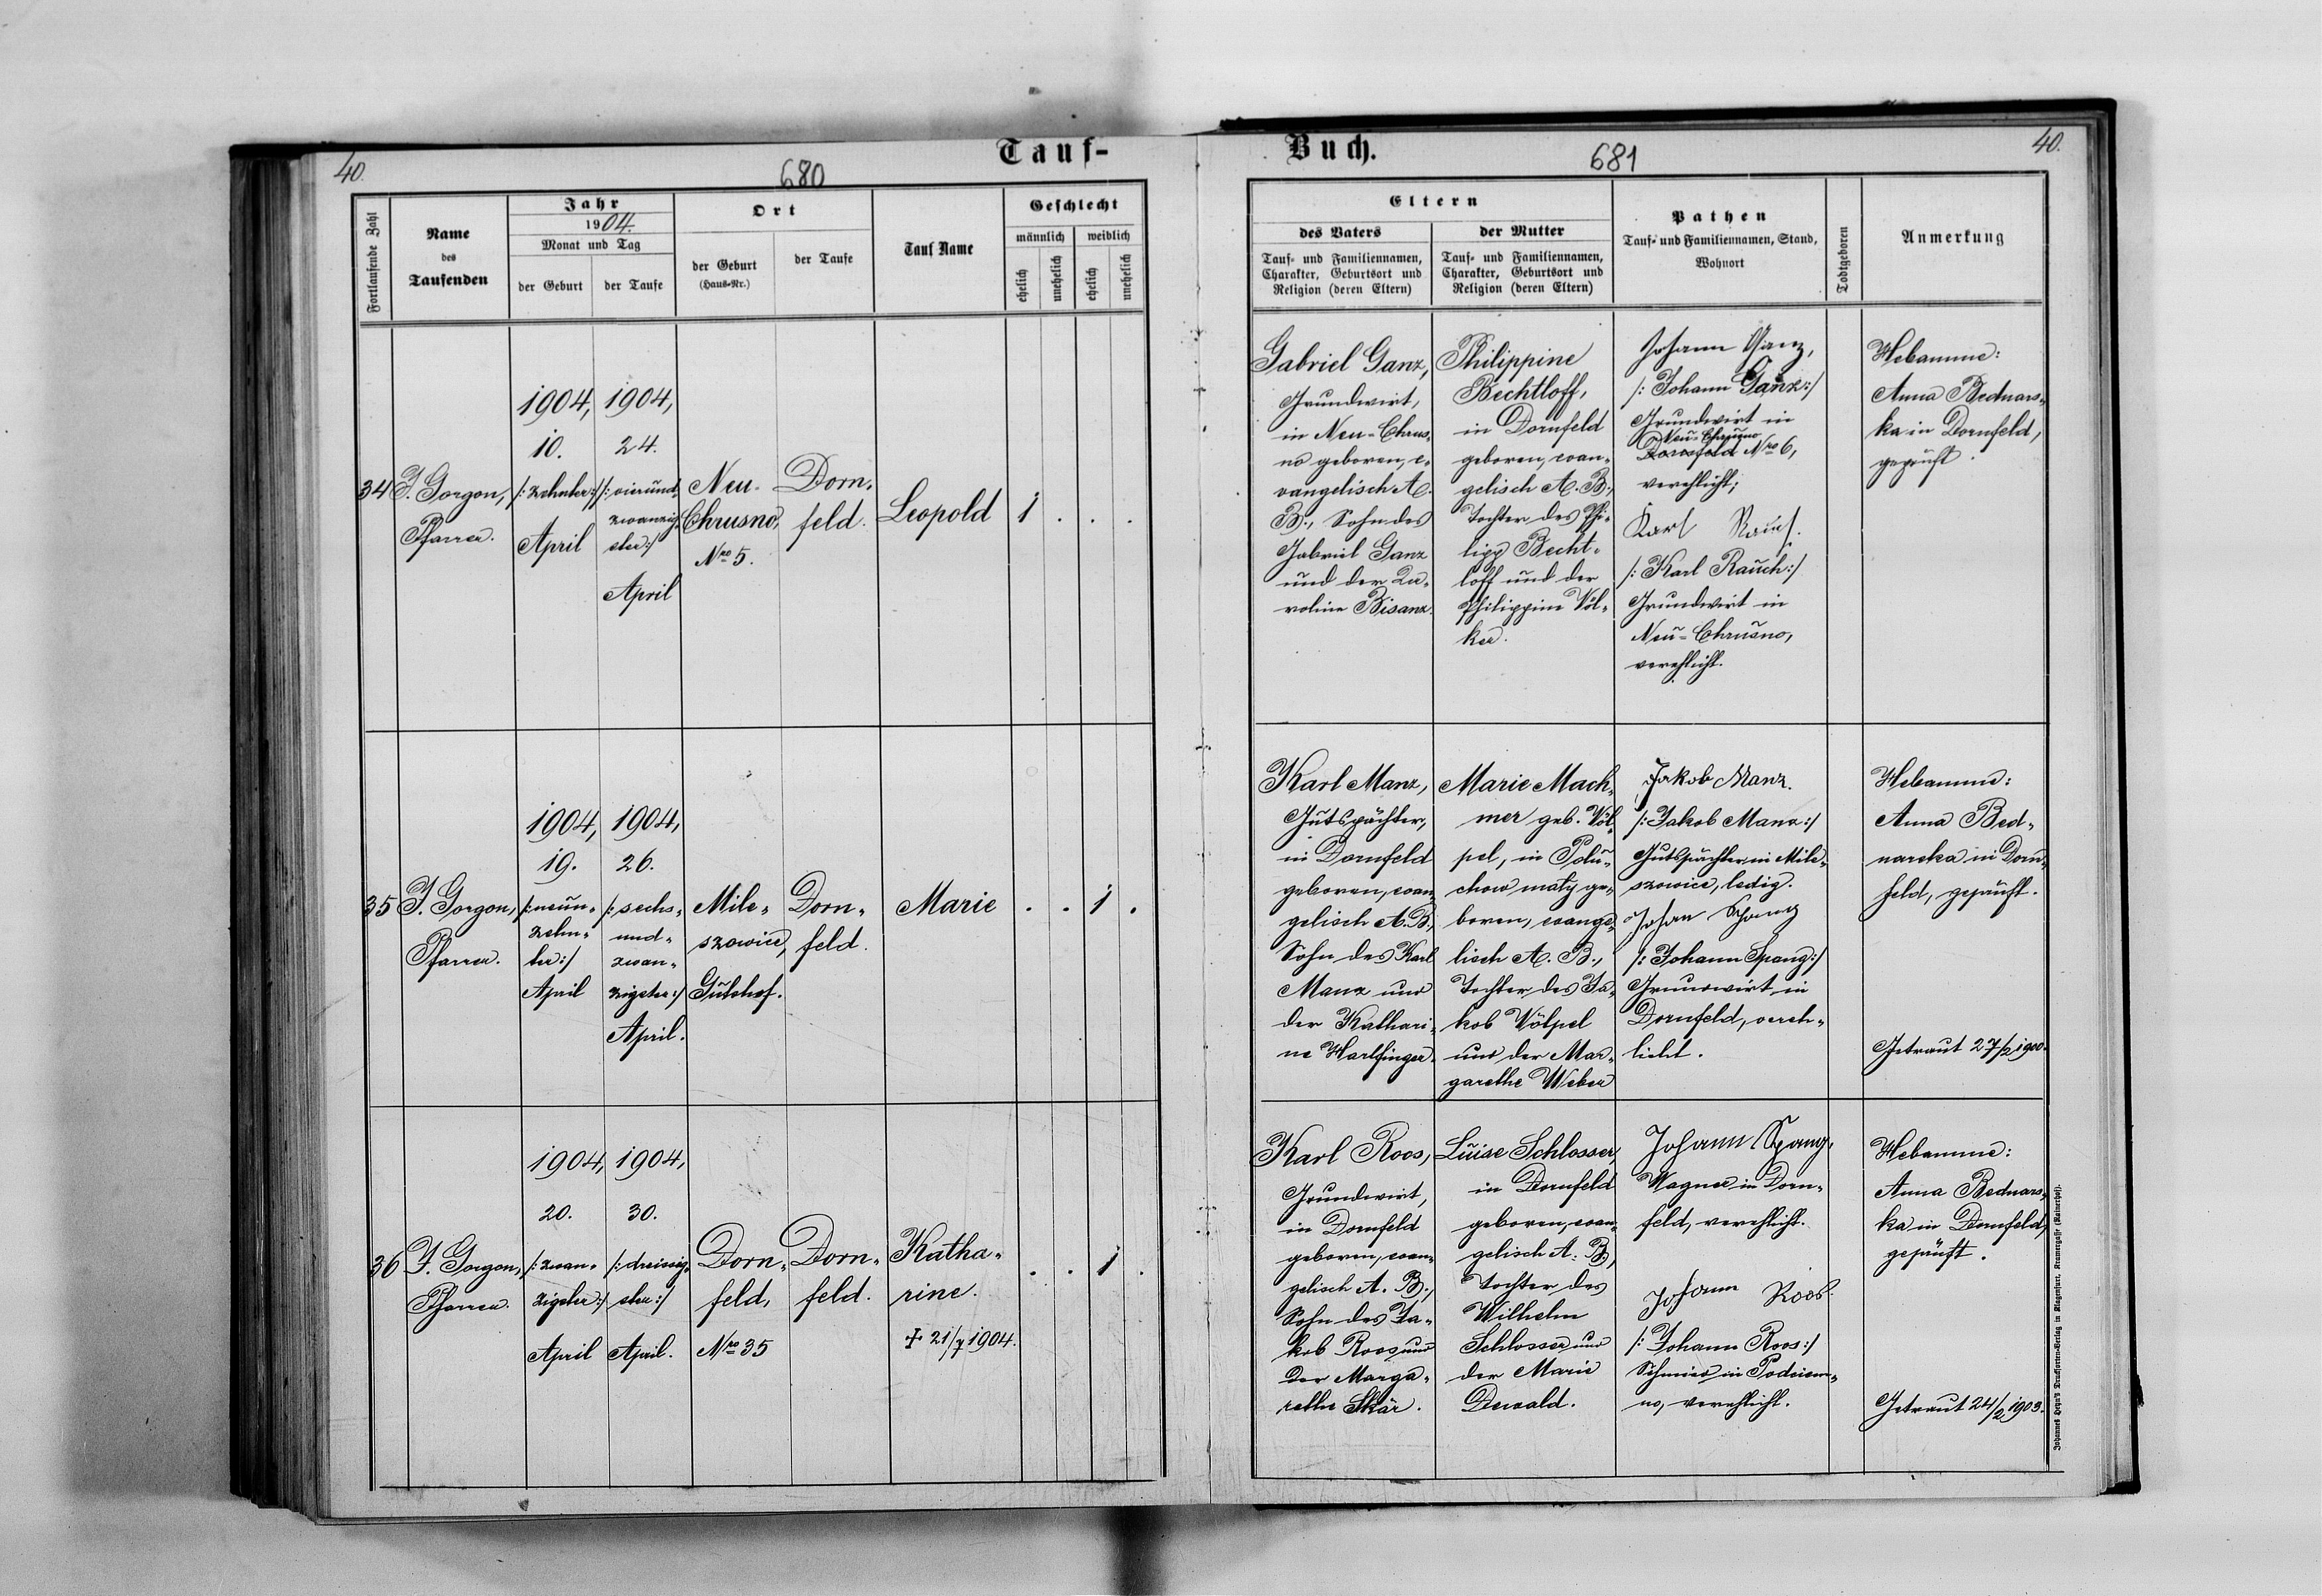 40.
680
Tauf-
Fortlaufende Zahl
Name
des
Taufenden
Jahr
1904.
Monat und Tag
der Geburt
der Taufe
Ort
der Geburt
(Haus-Nr.)
der Taufe
Tauf Name
Geschlecht
männlich
weiblich
ehelich
unehelich
ehelich
unehelich
34
J. Gorgon,
Pfarrer.
1904,
10.
/: zehnter :/
April
1904,
24.
/: vierund-
zwanzig-
ster :/
April
Neu-
Chrusno,
Nro 5.
Dorn-
feld.
Leopold
1 . . .
35
J. Gorgon,
Pfarrer.
1904,
19.
/: neun-
zehn-
ter :/
April
1904,
26.
/: sechs-
und-
zwan-
zigster :/
April.
Mile-
szowice,
Gutshof.
Dorn-
feld.
Marie
. . 1 .
36
J. Gorgon,
Pfarrer.
1904,
20.
/: zwan-
zigster :/
April
1904,
30.
/: dreissig-
ster :/
April.
Dorn-
feld,
Nro 35
Dorn-
feld.
Katha-
rine.
✝ 21/7 1904.
. . 1 .
Buch.
681
40.
Eltern
des Vaters
Tauf- und Familiennamen,
Charakter, Geburtsort und
Religion (deren Eltern)
der Mutter
Tauf- und Familiennamen,
Charakter, Geburtsort und
Religion (deren Eltern)
Pathen
Tauf- und Familiennamen, Stand,
Wohnort
Todtgeboren
Anmerkung
Gabriel Ganz,
Grundwirt,
in Neu-Chrus-
no geboren, e-
vangelisch A.
B., Sohn des
Gabriel Ganz
und der Ka-
roline Bisanz.
Philippine
Bechtloff,
in Dornfeld
geboren, evan-
gelisch A. B.,
Tochter des Phi-
lipp Becht-
loff und der
Philippine Völ-
ker.
Johann Ganz,
/: Johann Ganz :/
Grundwirt in
Neu-Chrusno
Dornfeld Nro 6,
verehlicht;
Karl Rauch.
/: Karl Rauch :/
Grundwirt in
Neu-Chrusno,
verehlicht.
Hebamme:
Anna Bednars-
ka in Dornfeld,
geprüft.
Karl Manz,
Gutspächter,
in Dornfeld
geboren, evan-
gelisch A. B.,
Sohn des Karl
Manz und
der Kathari-
ne Harlfinger.
Marie Mach-
mer geb. Völ-
pel, in Polu-
chow maly ge-
boren, evange-
lisch A. B.,
Tochter des Ja-
kob Völpel
und der Mar-
garethe Weber
Jakob Manz.
/: Jakob Manz :/
Gutspächter in Mile-
szowice, ledig.
Johan Spang
/: Johann Spang :/
Grundwirt in
Dornfeld, vereh-
licht.
Hebamme:
Anna Bed-
narska in Dorn-
feld, geprüft.
Getraut 27/2 1900.
Karl Roos,
Grundwirt,
in Dornfeld
geboren, evan-
gelisch A. B.,
Sohn des Ja-
kob Roos und
der Marga-
rethe Skär.
Luise Schlosser,
in Dornfeld
geboren, evan-
gelisch A. B.,
Tochter des
Wilhelm
Schlosser und
der Marie
Dewald.
Johann Spang,
Wagner in Dorn-
feld, verehlicht.
Johann Roos.
/: Johann Roos :/
Schmied in Podciem-
no, verehlicht.
Hebamme:
Anna Bednars-
ka in Dornfeld,
geprüft.
Getraut 24/2 1903.